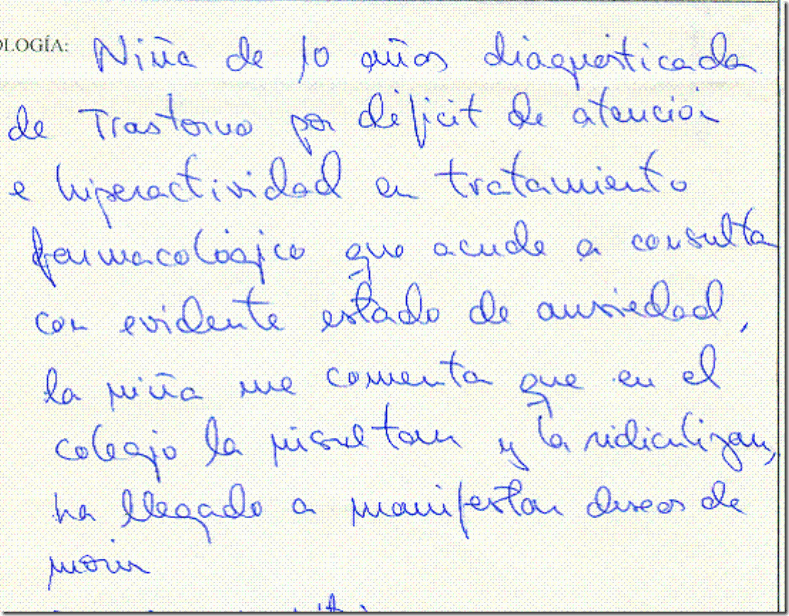 OLOGÍA: Niña de 10 años diagnosticada
de Trastorno por déficit de atención
e hiperactividad en tratamiento
farmacológico que acude a consulta
con evidente estado de ansiedad,
la niña me comenta que en el
colegio la insultan y la ridiculizan,
ha llegado a manifestar deseos de
morir